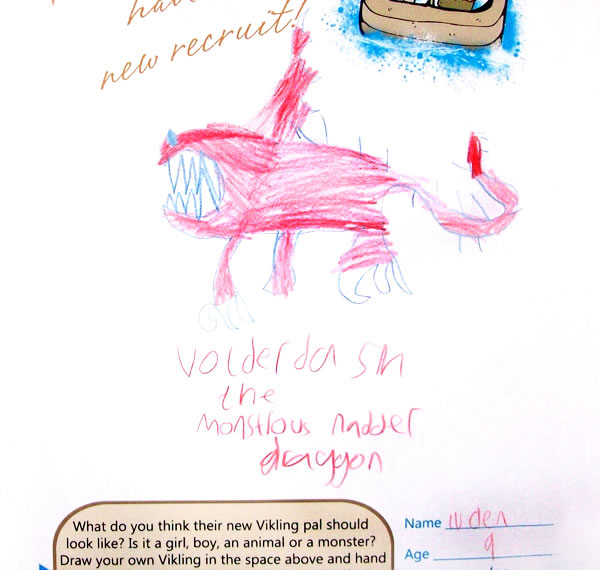 hav
new recruit!
volderda sin
the
monstrous nadder
draygon
What do you think their new Vikling pal should
look like? Is it a girl, boy, an animal or a monster?
Draw your own Vikling in the space above and hand
Name
Age 9